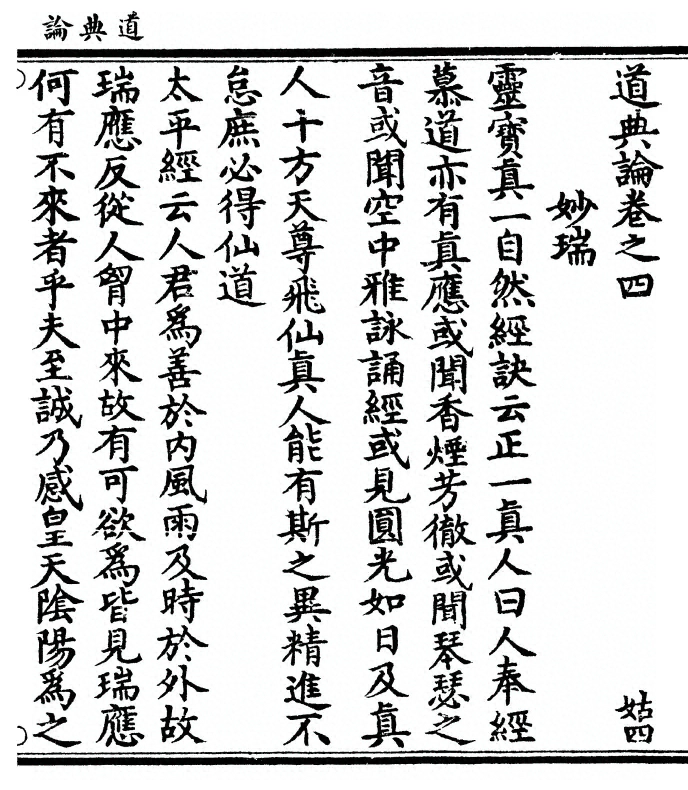 道典論
道典論卷之四 姑四
妙瑞
靈寶真一自然經訣云正一真人曰人奉經
慕道亦有真應或聞香煙芳徹或聞琴瑟之
音或聞空中雅詠誦經或見圓光如日及真
人十方天尊飛仙真人能有斯之異精進不
怠庶必得仙道
太平經云人君為善於內風雨及時於外故
瑞應反從人胷中來故有可欲為皆見瑞應
何有不來者乎夫至誠乃感皇天陰陽為之